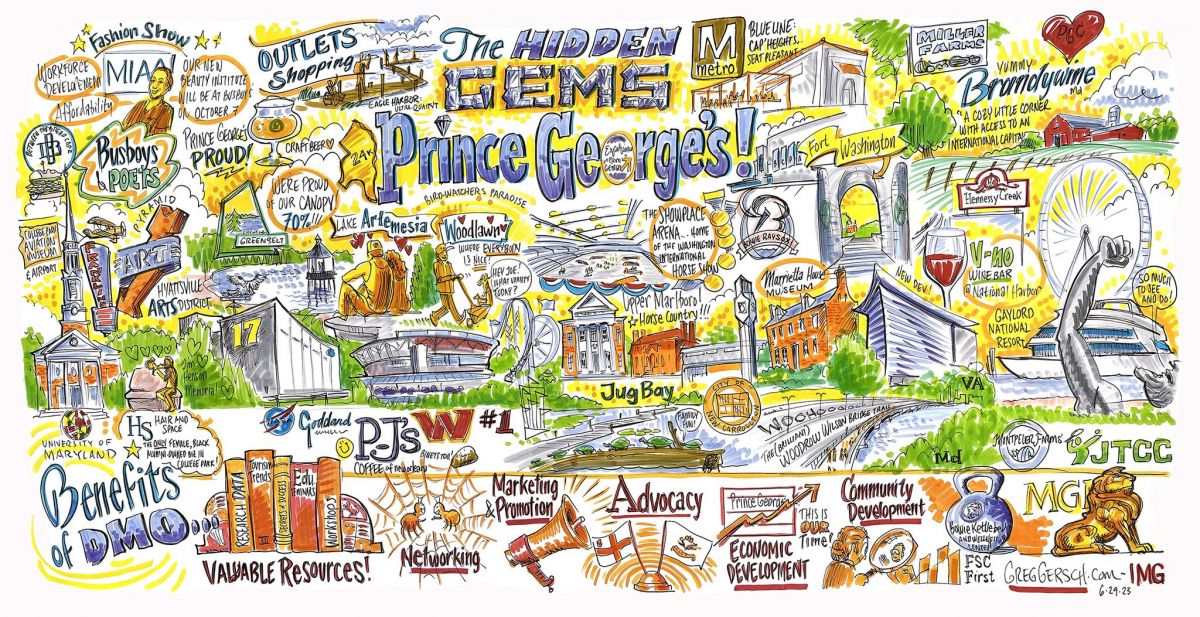 Fashion Show
WORKFORCE
DEVELOPMENT
Affordability
MIAA
OUR NEW
BEAUTY INSTITUTE
WILL BE AT BUSBOYS
ON OCTOBER 7
OUTLETS
Shopping
EAGLE HARBOR:
ULTRA-QUAINT
The HIDDEN
GEMS
Prince George's!
M
metro
BLUE LINE:
CAP HEIGHTS,
SEAT PLEASANT
MILLER
FARMS
PGC
YUMMY
Brandywine
Md
"A COZY LITTLE CORNER
WITH ACCESS TO AN
INTERNATIONAL CAPITAL"
B
Busboys
POETS
PRINCE GEORGE'S
PROUD!
CRAFT BEER
24K
Fort Washington
WE'RE PROUD
OF OUR CANOPY
70%!!!
GREENBELT
BIRD-WATCHER'S PARADISE
LAKE Artemesia
Woodlawn
WHERE EVERYBODY
IS NICE
HEY JOE!
WHAT'S HAPPY
TODAY?
THE SHOWPLACE
ARENA... HOME
OF THE WASHINGTON
INTERNATIONAL
HORSE SHOW
BOWIE BAYSOX
Hennessy Creek
COLLEGE PARK
AVIATION
MUSEUM
& AIRPORT
PYRAMID
FRANKLINS
ART
HYATTSVILLE
ARTS DISTRICT
Upper Marlboro!
Horse Country!!!
Marrietta House
MUSEUM
NEW DEV!
V-NO
WINE BAR
@ National Harbor
GAYLORD
NATIONAL
RESORT
SO MUCH
TO SEE
AND DO!
17
Jim
Henson
Memorial
Jug Bay
CITY OF
NEW CARROLLTON
VA
UNIVERSITY OF
MARYLAND
HS HAIR AND
SPACE
THE ONLY FEMALE, BLACK
OWNED BIZ IN
COLLEGE PARK!
Goddard
PJ's
COFFEE of new orleans
W #1
FAMILY
FUN!
WOCHO
THE (BRILLIANT)
WOODROW WILSON BRIDGE TRAIL
Md
MONTPELIER FARMS
JTCC
Benefits
of DMO...
RESEARCH DATA
III
Tourism
Trends
SECRETS of SUCCESS
Edu.
SEMINARS
Workshops
VALUABLE RESOURCES!
Networking
Marketing
& PROMOTION
Advocacy
Prince George
THIS IS
OUR
Time!
ECONOMIC
DEVELOPMENT
Community
Development
Bowie Kettlebell
AND WELLNESS
CENTER
FSC
First
MGM
GREGGERSCH.com - IMG
6·29·23